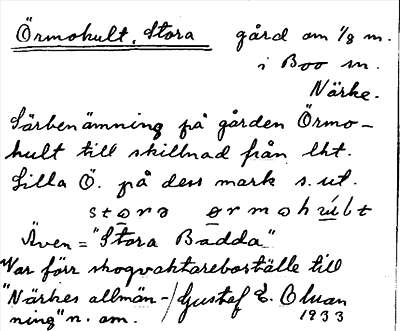 Örmohult, Stora gård om 1/8 m.
i Boo sn.
Närke.
Särbenämning på gården Örmo-
hult till skillnad från lht.
Lilla Ö. på dess mark s. ut.
Även = "Stora Badda"
Var förr skogvaktareboställe till
"Närkes allmän- / Gustaf E. Olsson
ning" n. om. 1933